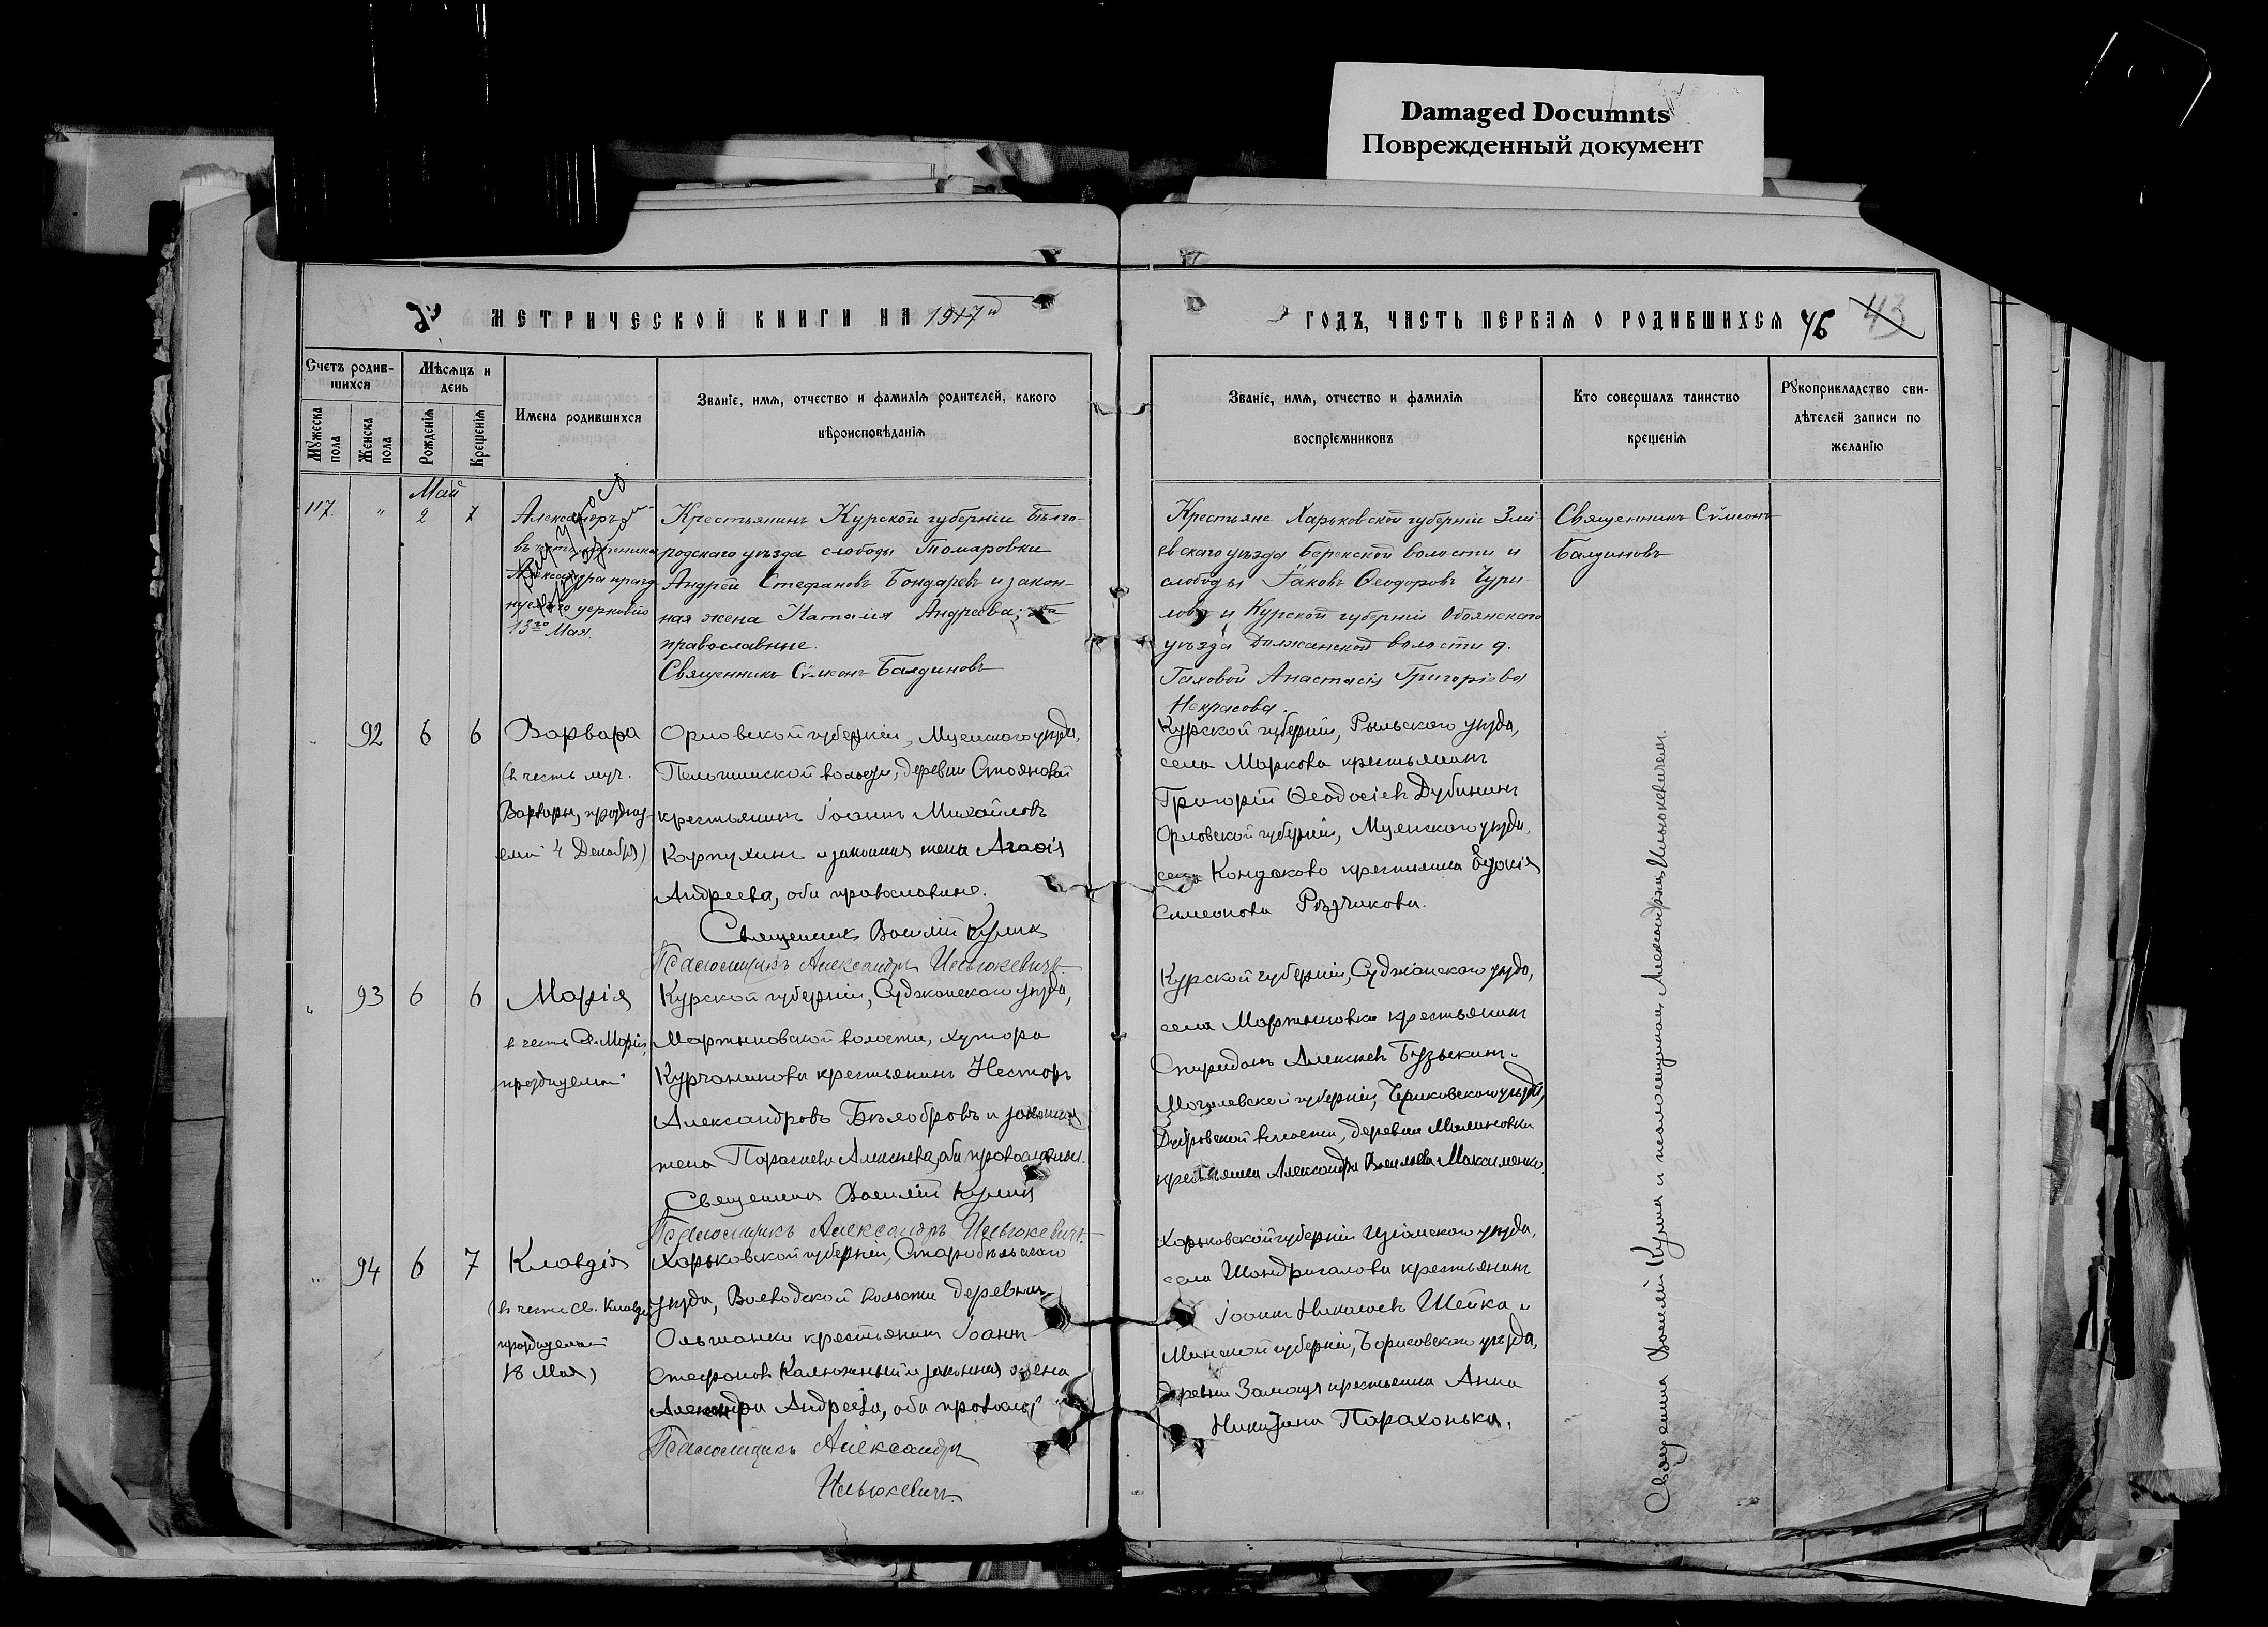 Damaged Documnts
Поврежденный документ
МЕТРИЧЕСКОЙ КНИГИ НА 1917й
ГОДЪ, ЧАСТЬ ПЕРВАЯ О РОДИВШИХСЯ 46 43
Счетъ родив-
шихся
Мѣсяцъ и
день
Мужеска пола
Женска пола
Рожденія
Крещенія
Имена родившихся
Званіе, имя, отчество и фамилія родителей, какого
вѣроисповѣданія
Званіе, имя, отчество и фамилія
воспріемниковъ
Кто совершалъ таинство
крещенія
Рукоприкладство сви-
дѣтелей записи по
желанію
Май
117. " 2 7
Александръ
въ честь
Александра празд-
церковію
13го Мая.
Крестьянинъ Курской губерніи Бѣлго-
родскаго уѣзда слободы Томаровки
Андрей Стефановъ Бондаревъ и закон-
ная жена Наталія Андреева;
православные.
Священникъ Сѵмеонъ Балдиновъ
Крестьяне Харьковской губерніи Змі-
евскаго уѣзда Берекской волости и
слободы Іаковъ Ѳеодоровъ Чури-
ловъ и Курской губерніи Обоянскаго
уѣзда Долженской волости д.
Гаховой Анастасія Григоріева
Некрасова.
Священникъ Сѵмеонъ
Балдиновъ
" 92 6 6
Варвара
(въ честь муч.
Варвары, празднуе-
емой 4 Декабря)
Орловской губерніи, Мценскаго уѣзда,
волости, деревни Стояновой
крестьянинъ Іоаннъ Михайловъ
Карпухинъ и законная жена
Андреева, оба православные.
Священникъ Василій Кулик
Псаломщикъ Александръ Ильюкевичъ.
Курской губерніи, Рыльскаго уѣзда,
села Маркова крестьянинъ
Григорій Ѳеодосіевъ Дубининъ
Орловской губерніи, Мценскаго уѣзда,
села Кондакова крестьянка Евдокія
Симеонова Рѣзчикова.
" 93 6 6
Марія
въ честь св. Маріи,
празднуемой
Курской губерніи, Суджанскаго уѣзда,
Мартыновской волости, хутора
Курчанинова крестьянинъ Несторъ
Александровъ Бѣлобровъ и законная
жена Параскева Алексѣева, оба православные.
Священникъ Василій Кулик
Псаломщикъ Александръ Ильюкевичъ.
Курской губерніи, Суджанскаго уѣзда,
села Мартыновки крестьянинъ
Спиридонъ Алексѣевъ Бузыкинъ и
Могилевской губерніи, Чериковскаго уѣзда,
Дубровской волости, деревни Малиновки
крестьянка Александра Васильева Максименко.
" 94 6 7
Клавдія
(въ честь св. Клавдіи
празднуемой
18 Мая)
Харьковской губерніи, Старобѣльскаго
уѣзда, Волости деревни
Ольшанки крестьянинъ Іоаннъ
Стефановъ Калюжный и законная жена
Александра Андреева, оба правосл.
Псаломщикъ Александръ
Ильюкевичъ.
Харьковской губерніи Изюмскаго уѣзда,
села Шандриголова крестьянинъ
Іоаннъ Николаевъ Шейка и
Минской губерніи, Борисовскаго уѣзда,
деревни Замощя крестьянка Анна
Никитина Парахонька.
Священникъ Василій Кулик и псаломщикъ Александръ Ильюкевичемъ.